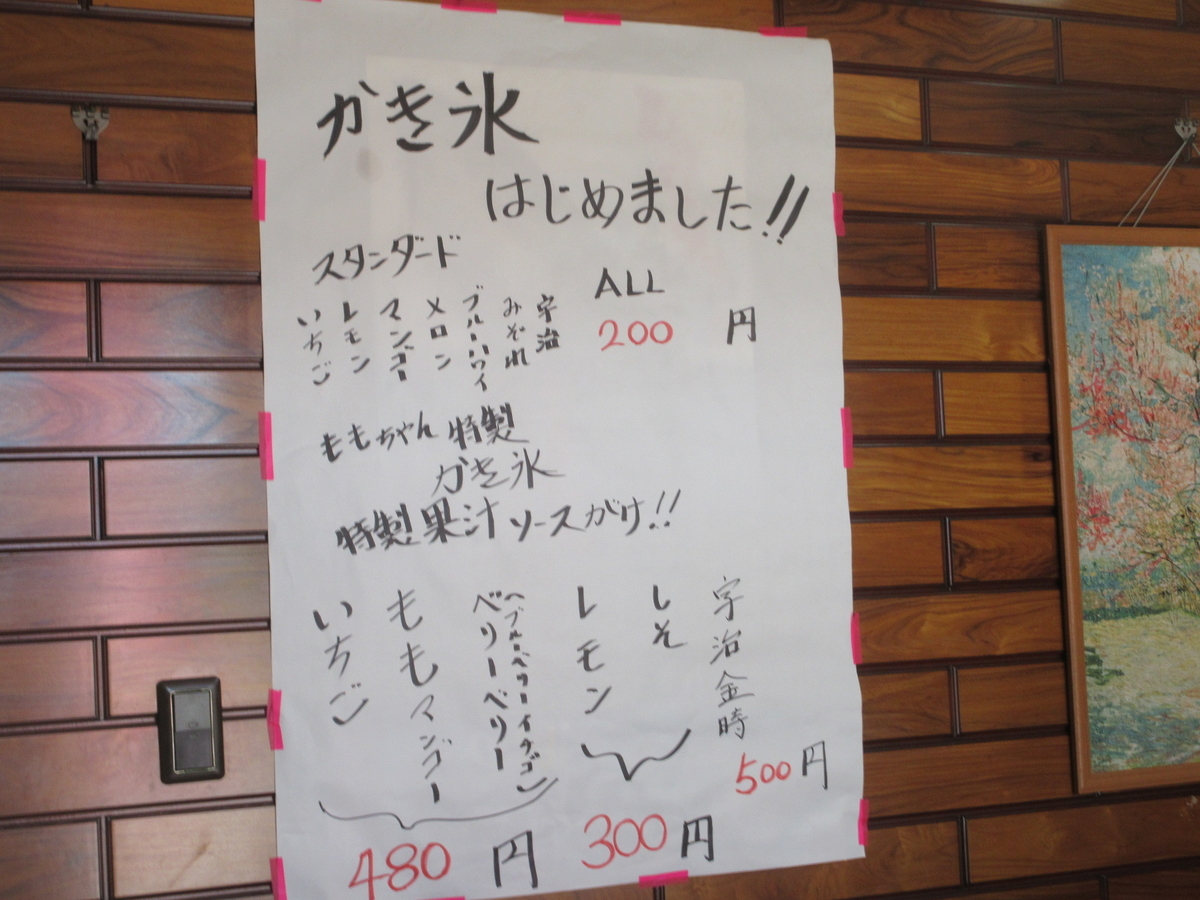 かき氷
はじめました!!
スタンダード
ALL
200円
宇治
みぞれ
ブルーハワイ
メロン
マンゴー
レモン
いちご
ももちゃん特製
かき氷
特製果汁ソースがけ!!
宇治金時
500円
しそ
レモン
300円
(ブルーベリーイチゴ)
ベリーベリー
ももマンゴー
いちご
480円